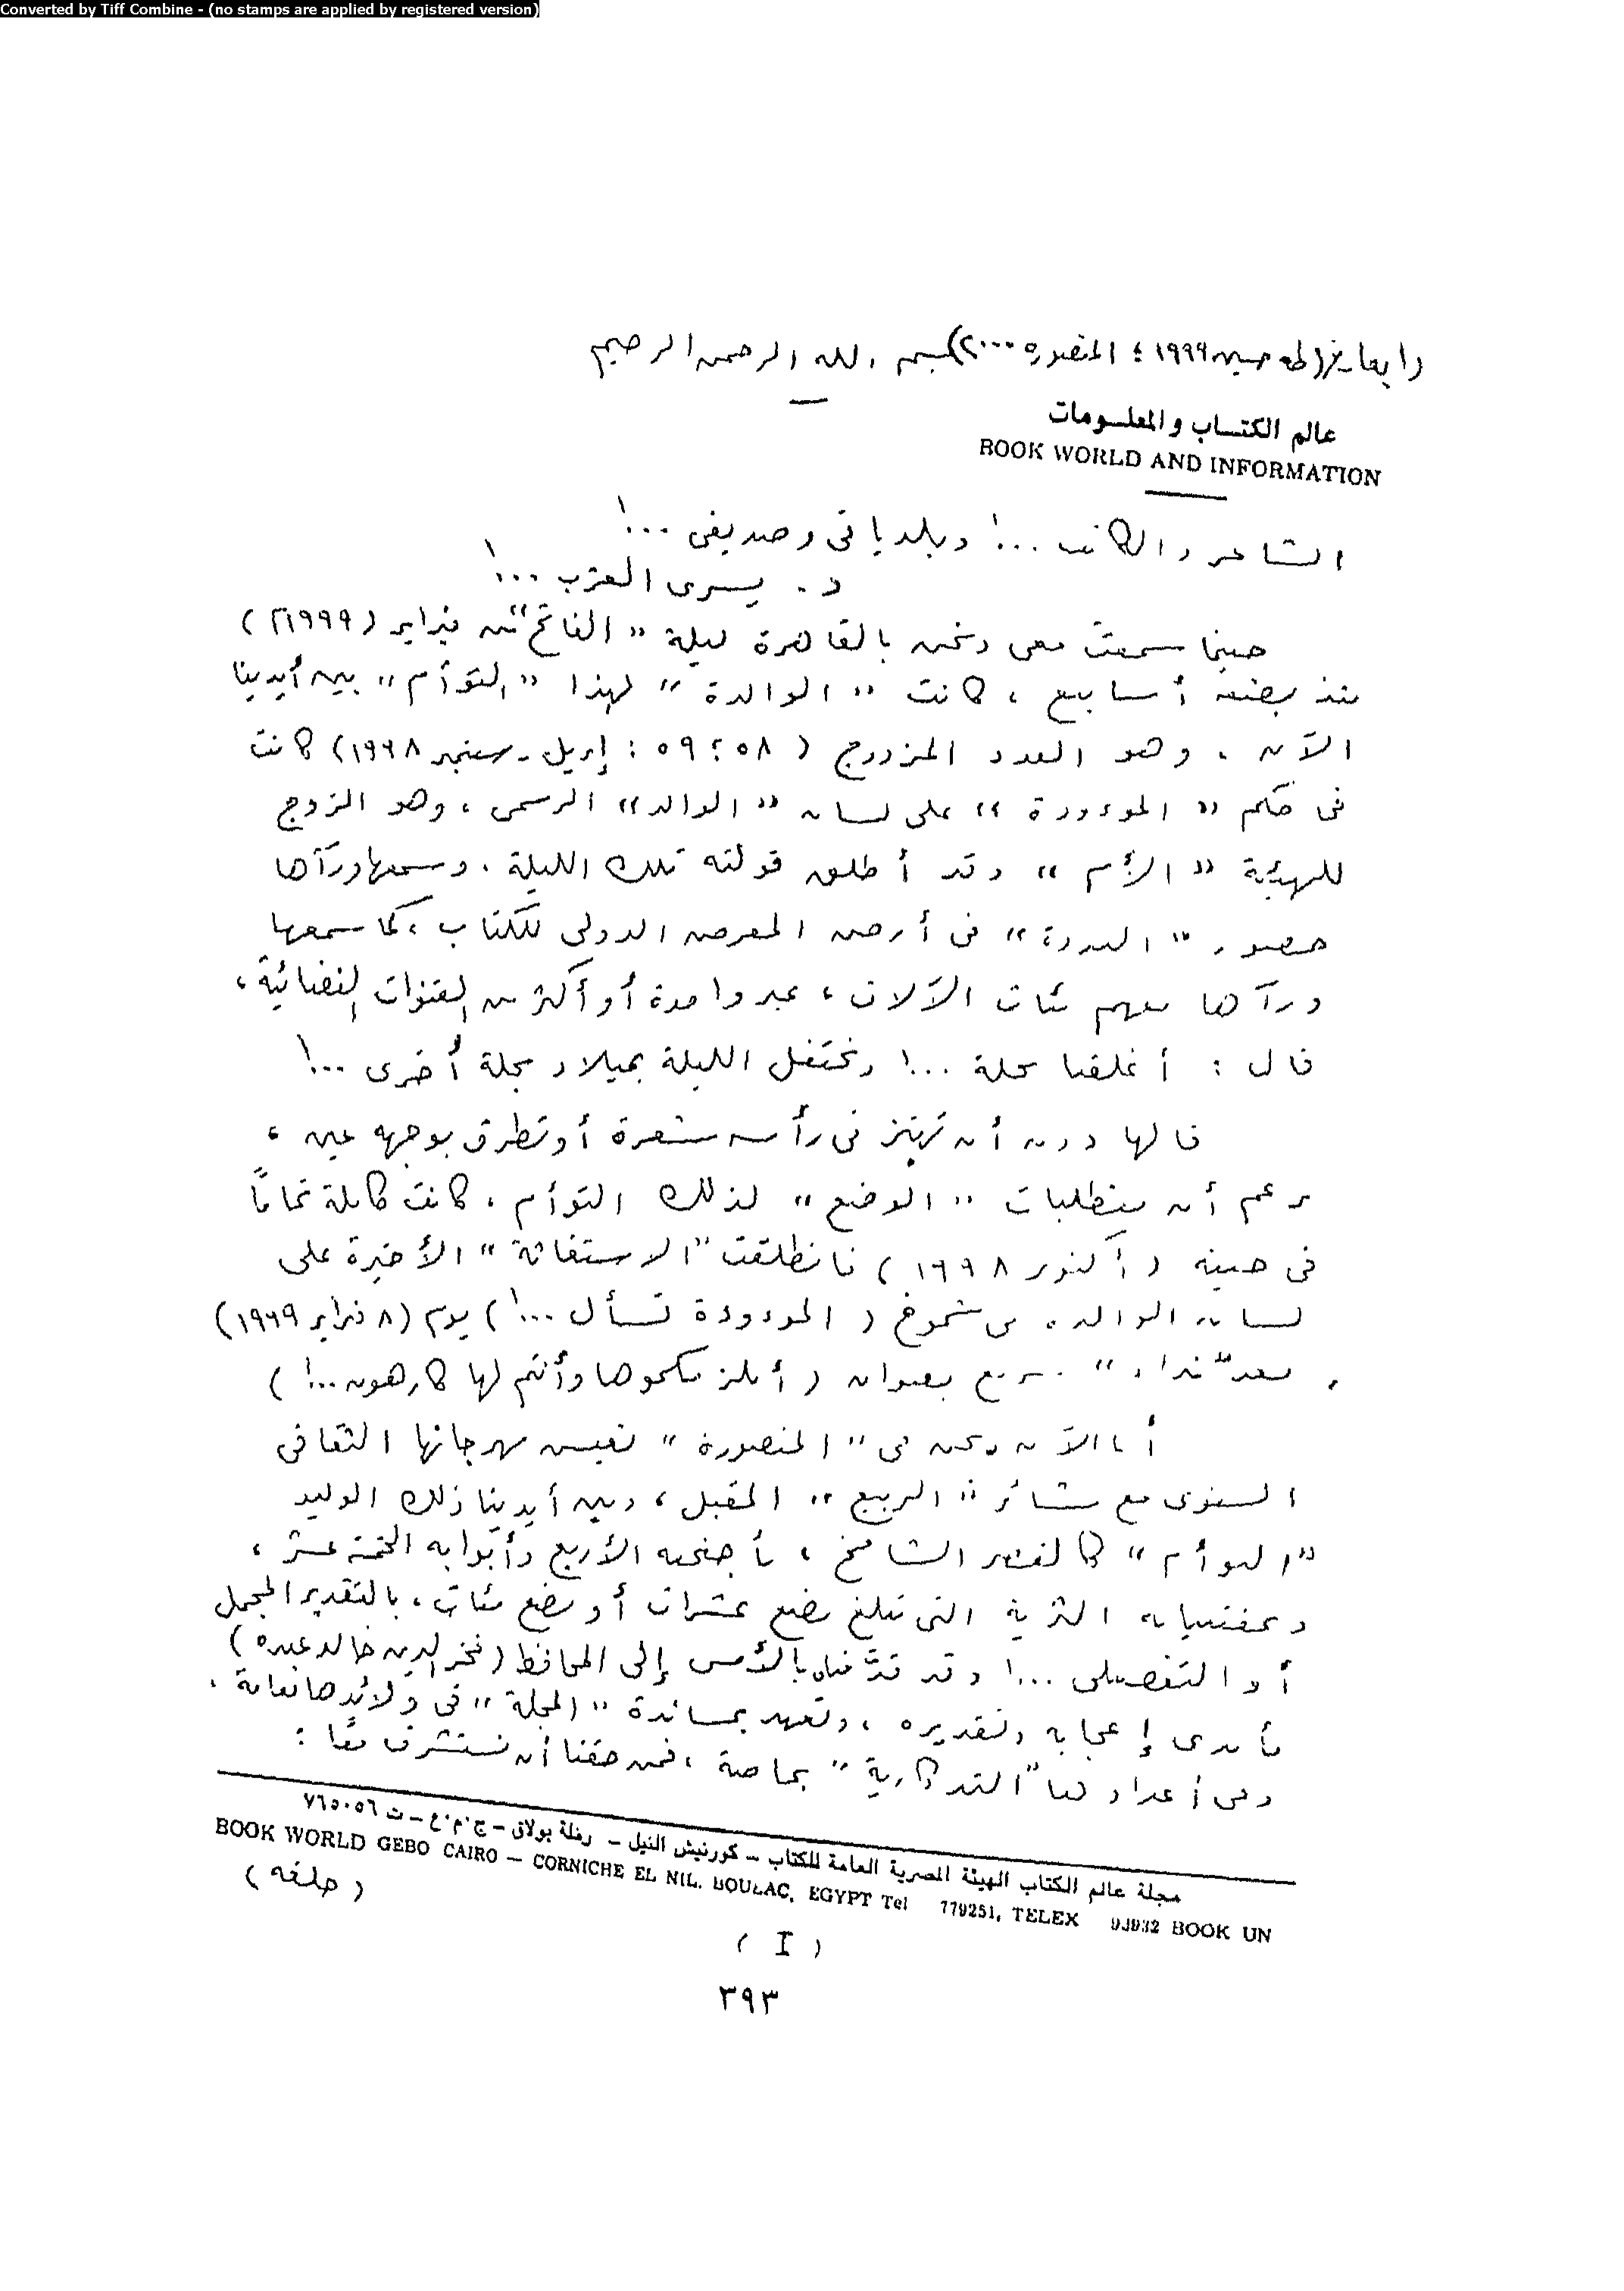 Converted by Tiff Combine - (no stamps are applied by registered version)
(طه حسين ١٩٩٩ ؛ المنصورة ٢٠٠٠) بسم الله الرحمن الرحيم
عالم الكتاب والمعلومات
BOOK WORLD AND INFORMATION
الشاعر والكاتب ...! وبلدياتى وصديقى ...!
د. يسرى العزب ...!
حينما سمعت معى ونحن بالقاهرة ليلة "الفاتح" من فبراير (١٩٩٩م)
منذ بضعة أسابيع ، كانت "الوالدة" لهذا "التوأم" بين أيدينا
الآن ، وهو العدد المزدوج (٥٨ ؛ ٥٩ : إبريل - سبتمبر ١٩٩٨) كانت
فى حكم "الموءودة" على لسان "الوالد" الرسمى ، وهو الزوج
للهيئة "الأم" وقد أطلق قولته تلك الليلة . وسمعها ورآها
حضور "الندوة" فى أرض المعرض الدولى للكتاب ، كما سمعها
ورآها معهم مئات الآلاف ، عبر واحدة أو أكثر من القنوات الفضائية ،
قال : أغلقنا مجلة ...! ونحتفل الليلة بميلاد مجلة أخرى ...!
قالها دون أن تهتز فى رأسه شعرة أو تطرق بوجهه عين ،
برغم أن متطلبات "الوضع" لذلك التوأم ، كانت كاملة تمامًا
فى حينه (أكتوبر ١٩٩٨) فانطلقت "الاستغاثة" الأخيرة على
لسان الوالد، فى شموخ (الموءودة تسأل ...!) يوم (٨ فبراير ١٩٩٩)
بعد "نداء" بعنوان (أنلزمكموها وأنتم لها كارهون ...!)
أما الآن ونحن فى "المنصورة" نعيش مهرجانها الثقافى
السنوى مع بشائر "الربيع" المقبل ، وبين أيدينا ذلك الوليد
"التوأم" كالقصر الشامخ ، بأجنحته الأربع وأبوابه الخمسة عشر ،
وبمقتنياته الثرية التى تبلغ بضع عشرات أو بضع مئات ، بالتقدير المجمل
أو التفصيلى ...! وقد قدَّمناه بالأمس إلى المحافظ (فخر الدين خالد عبده)
فأبدى إعجابه وتقديره ، وتعهد بمساندة "المجلة" فى ولائدها بعامة .
وفى أعدادها "التذكارية" بخاصة ، فمن حقنا أن نستشرف معًا :
مجلة عالم الكتاب الهيئة المصرية العامة للكتاب – كورنيش النيل – رملة بولاق – ج.م.ع – ت ٧٦٥٠٥٦
BOOK WORLD GEBO CAIRO – CORNICHE EL NIL. BOULAC, EGYPT Tel 779251, TELEX 93932 BOOK UN
(خلفه)
( I )
٣٩٣